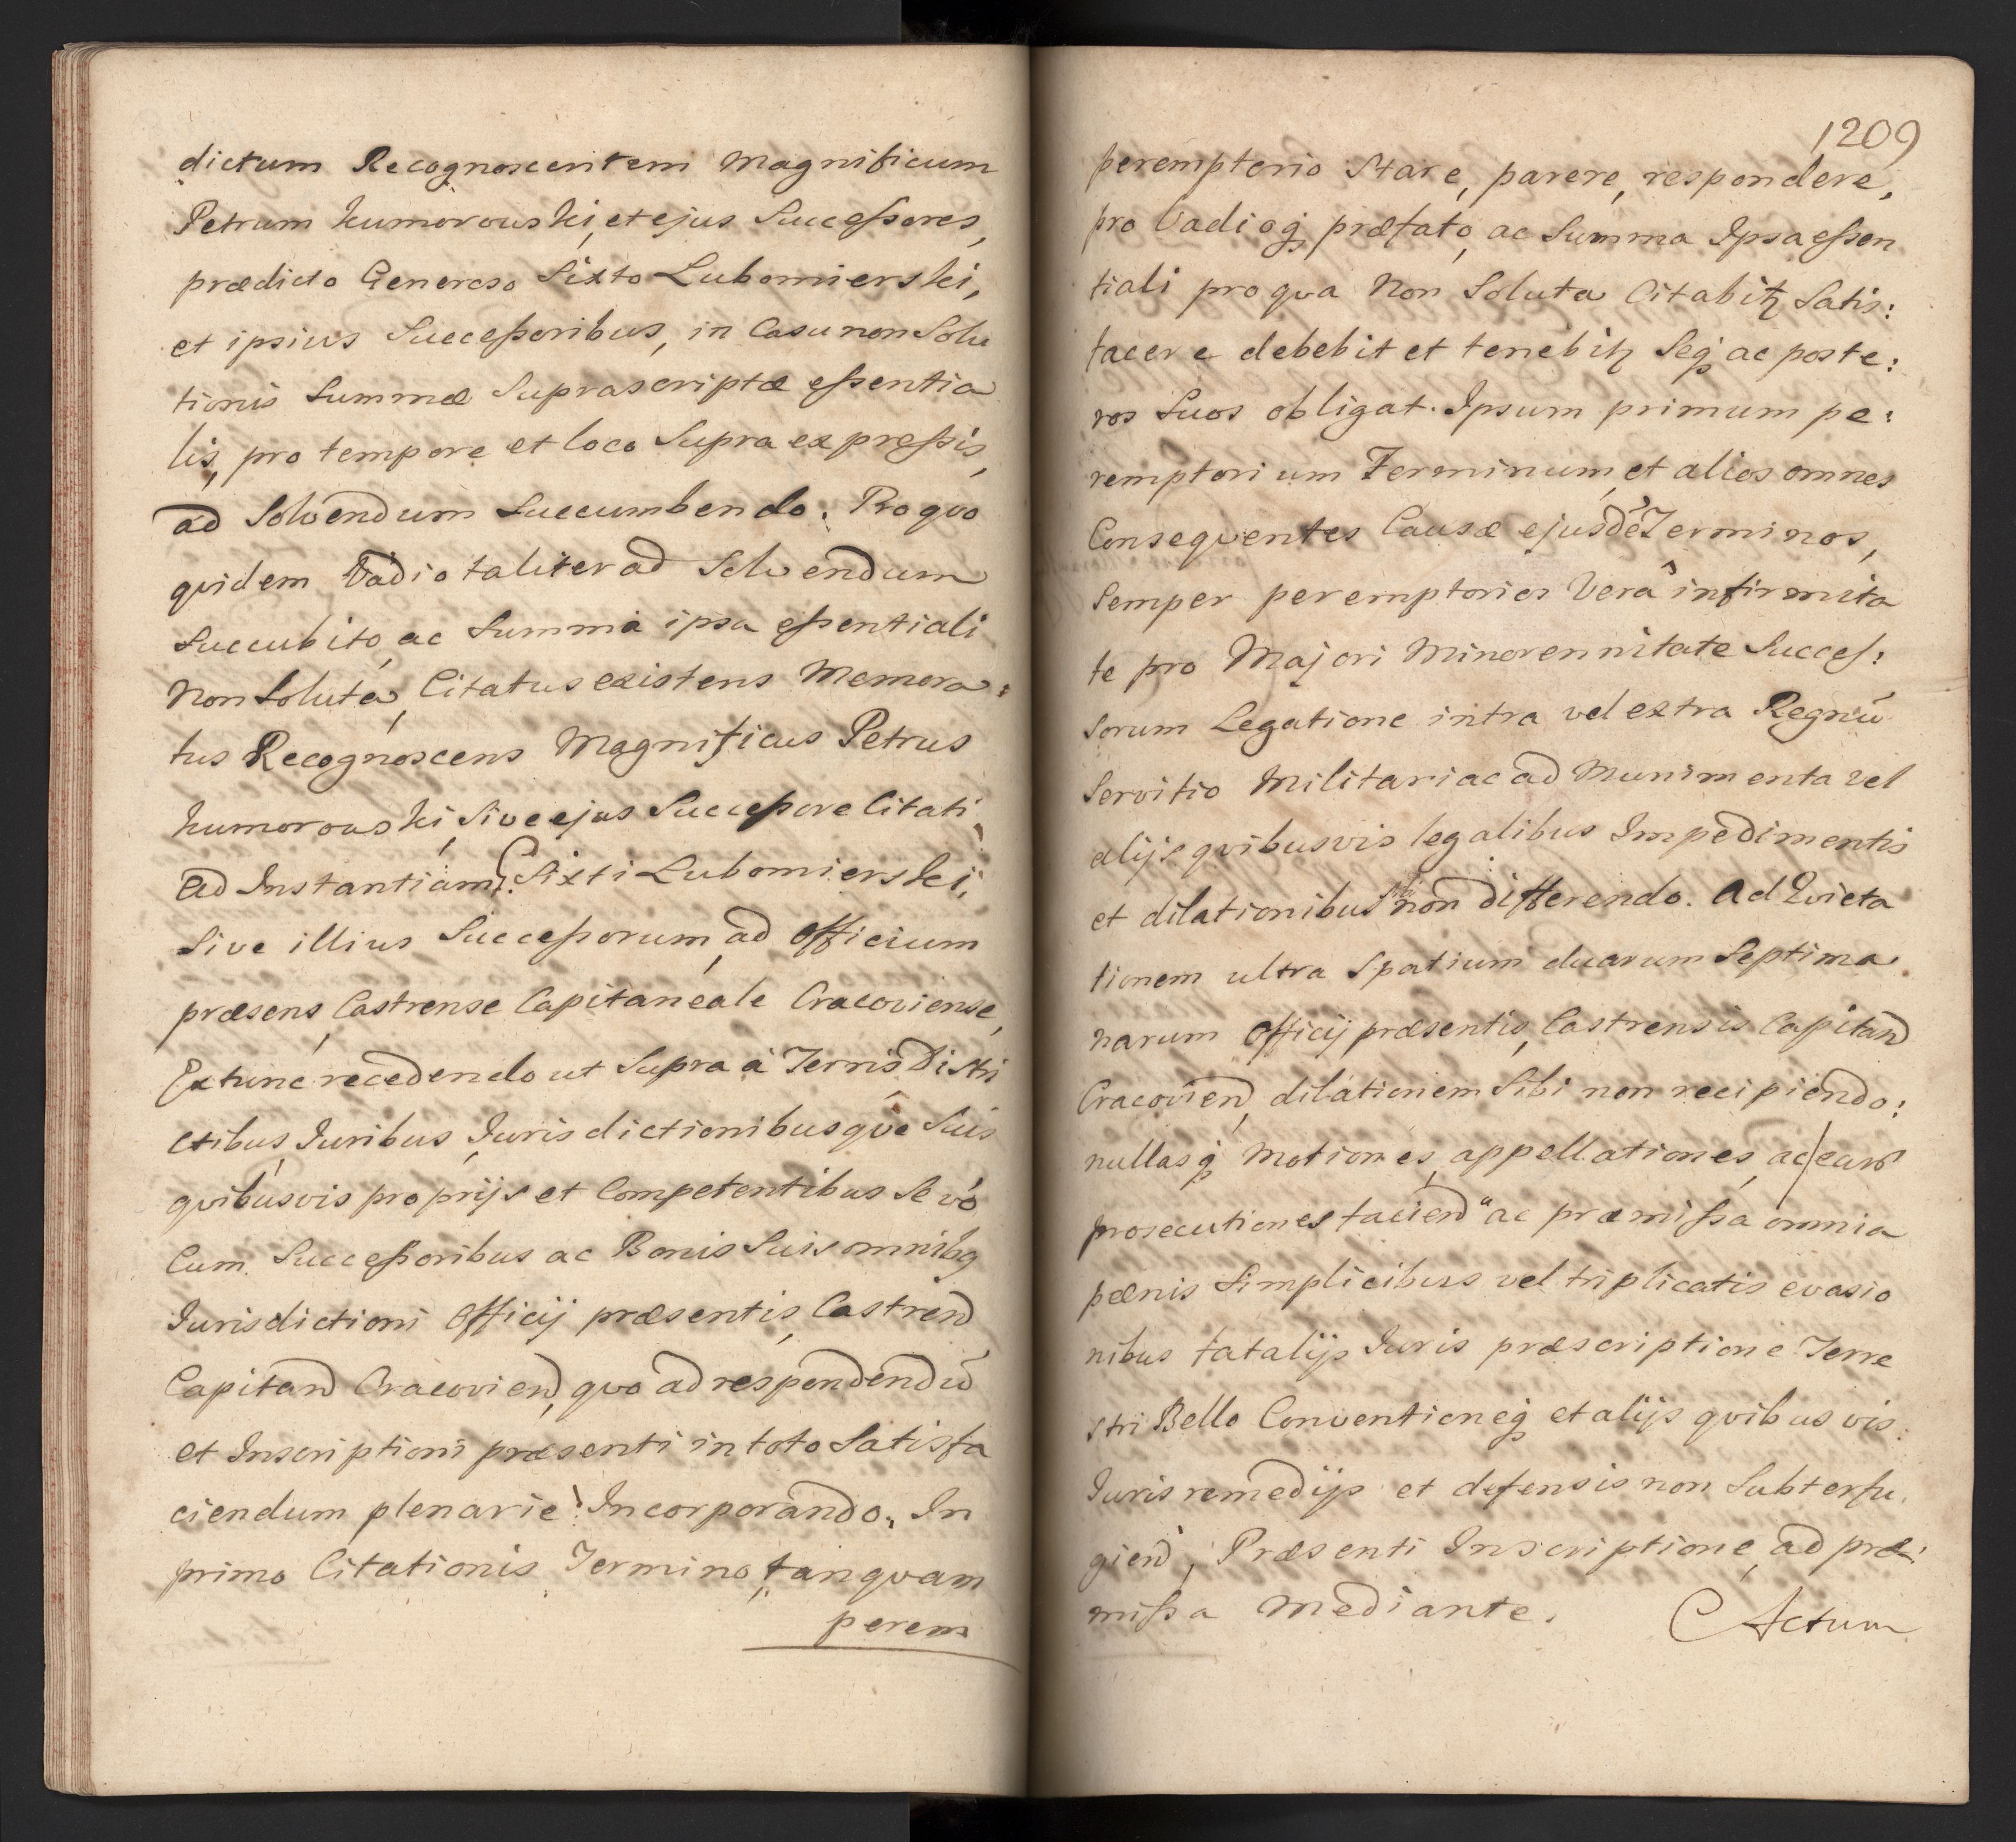 dictum Recognoscentem Magnificum
Petrum Kumorowski, et ejus Successores,
prædicto Generoso Sixto Lubomierski,
et ipsius Successoribus, in Casu non Solu
tionis Summæ Suprascriptæ essentia
lis, pro tempore et loco Supra expressis,
ad Solvendum Succumbendo. Pro quo
quidem Vadio taliter ad Solvendum
Succubito, ac Summa ipsa essentiali
Non Soluta, Citatus existens Memora:
tus Recognoscens Magnificus Petrus
Kumorowski, Sive ejus Successores Citati
ad Instantiam G. Sixti Lubomierski,
Sive illius Successorum, ad Officium
præsens, Castrense Capitaneale Cracoviense,
Ex tunc recedendo ut Supra à Terris Distri
ctibus, Juribus, Jurisdictionibusque Suis
quibusvis proprijs et Competentibus Se vó
Cum Successoribus ac Bonis Suis omnibq
Jurisdictioni Officij præsentis, Castren
Capitan Cracovien, quo ad respondendū
et Inscriptioni præsenti in toto Satisfa
ciendum plenarie Incorporando. In
primo Citationis Termino, tanquam
perem
1209
peremptorio Stare, parere, respondere,
pro Vadioq præfato, ac Summa Ipsa essen
tiali pro qua Non Soluta Citabitz Satis:
facere debebit et tenebitz Seq ac poste:
ros Suos obligat. Ipsum primum pe:
remptorium Terminum, et alios omnes
Consequentes Causæ ejusdē Terminos,
Semper peremptorios Verâ infirmita
te pro Majori Minorennitate Succes:
sorum Legatione intra vel extra Regnū
Servitio Militari ac ad Munimenta vel
alijs quibusvis legalibus Impedimentis
et dilationibus sibi non differendo. Ad Evicta
tionem ultra Spatium duarum Septima
narum Officij præsentis, Castrensis Capitan
Cracovien, dilationem Sibi non recipiendo:
nullasq Motiones, appellationes, ac earū
prosecutiones facien ac præmissa omnia
pænis Simplicibus vel triplicatis evasio
nibus fatalijs Juris præscriptione Terre
stri Bello Conventioneq et alijs quibusvis
Juris remedijs et defensis non Subterfu
gien, Præsenti Inscriptione, ad præ:
missa Mediante. Actum